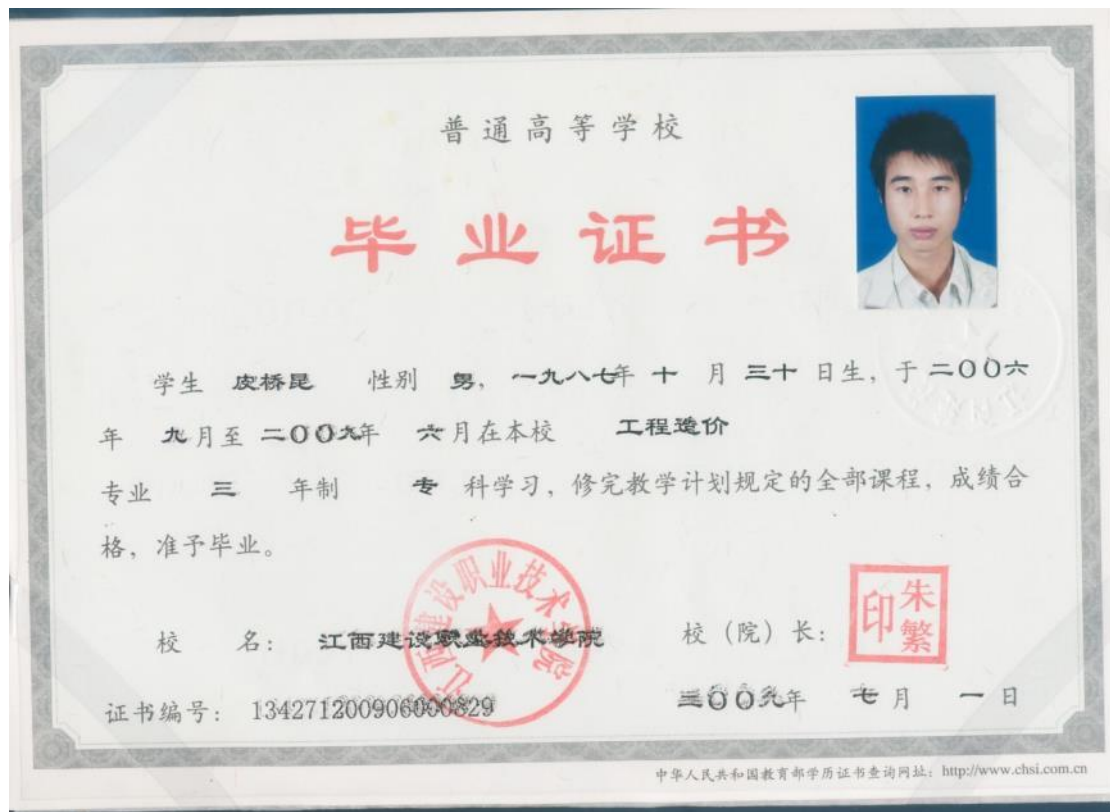 普通高等学校
毕业证书
学生 皮桥昆 性别 男，一九八七年 十 月 三十 日生，于 二00六
年 九月至 二00九年 六月在本校 工程造价
专业 三 年制 专 科学习，修完教学计划规定的全部课程，成绩合
格，准予毕业。
江西建设职业技术学院
校 名： 江西建设职业技术学院 校（院）长： 朱繁印
证书编号： 134271200906000829 二00九年 七月 一日
中华人民共和国教育部学历证书查询网址：http://www.chsi.com.cn